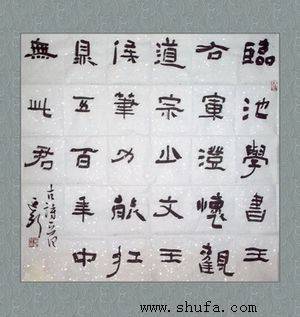 臨池學書王
右軍澄懷觀
道宗少文王
侯筆力能扛
鼎五百年中
無此君
古詩
www.shufa.com